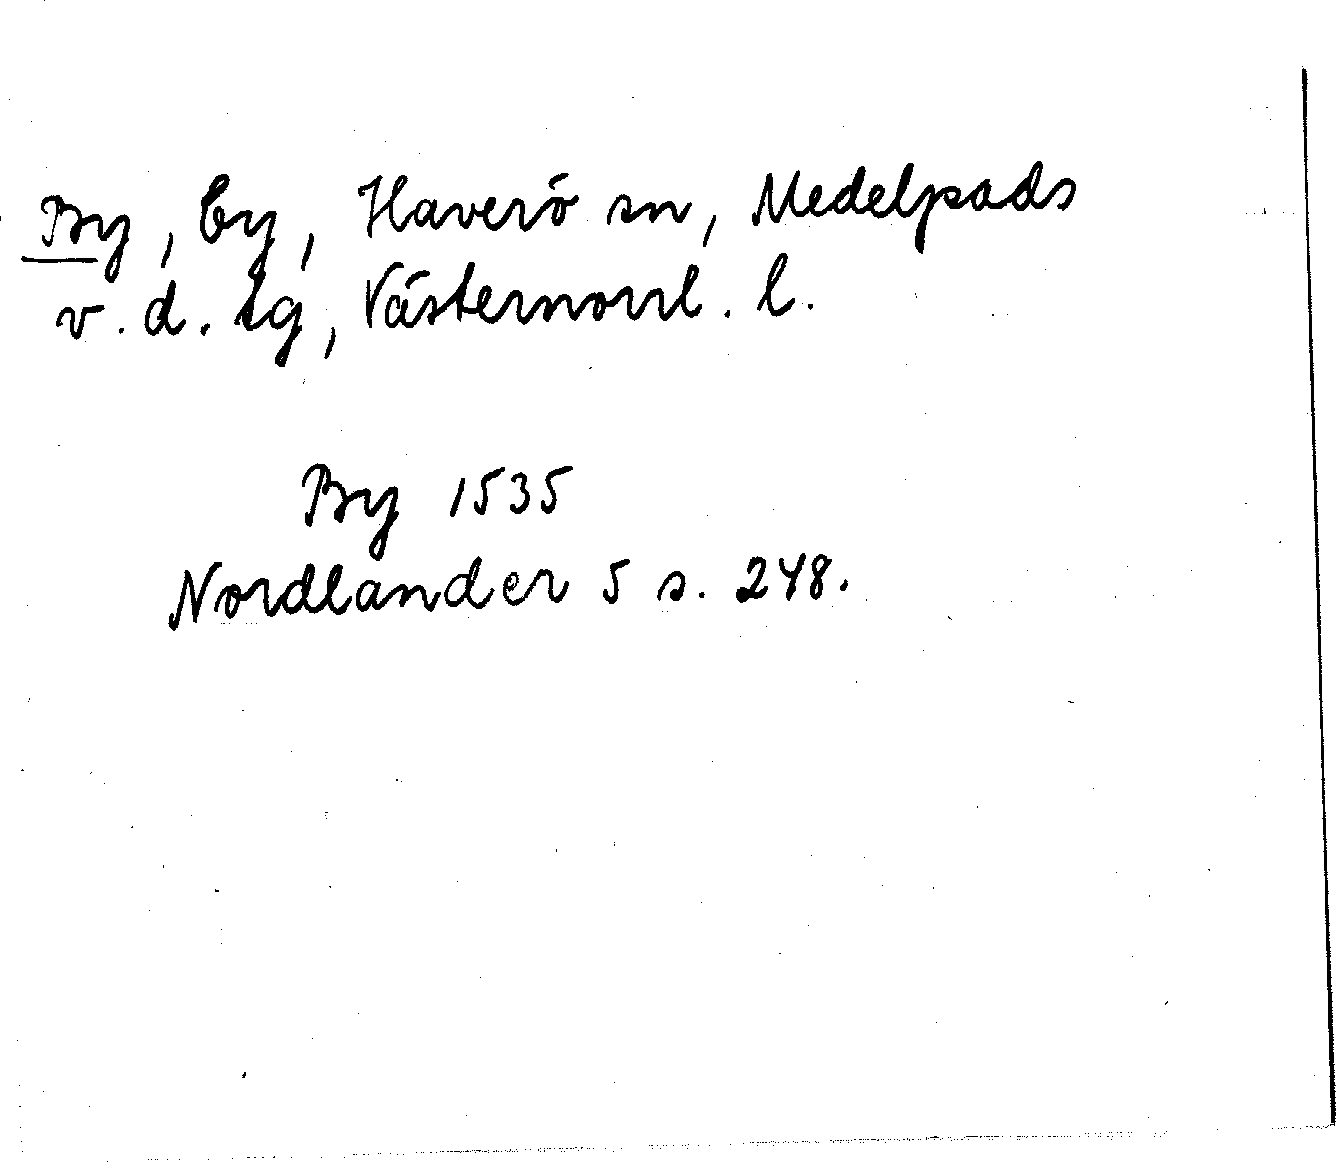 By, by, Haverö sn, Medelpads
v. d. tg, Västernorrl. l.
By 1535
Nordlander 5 s. 248.